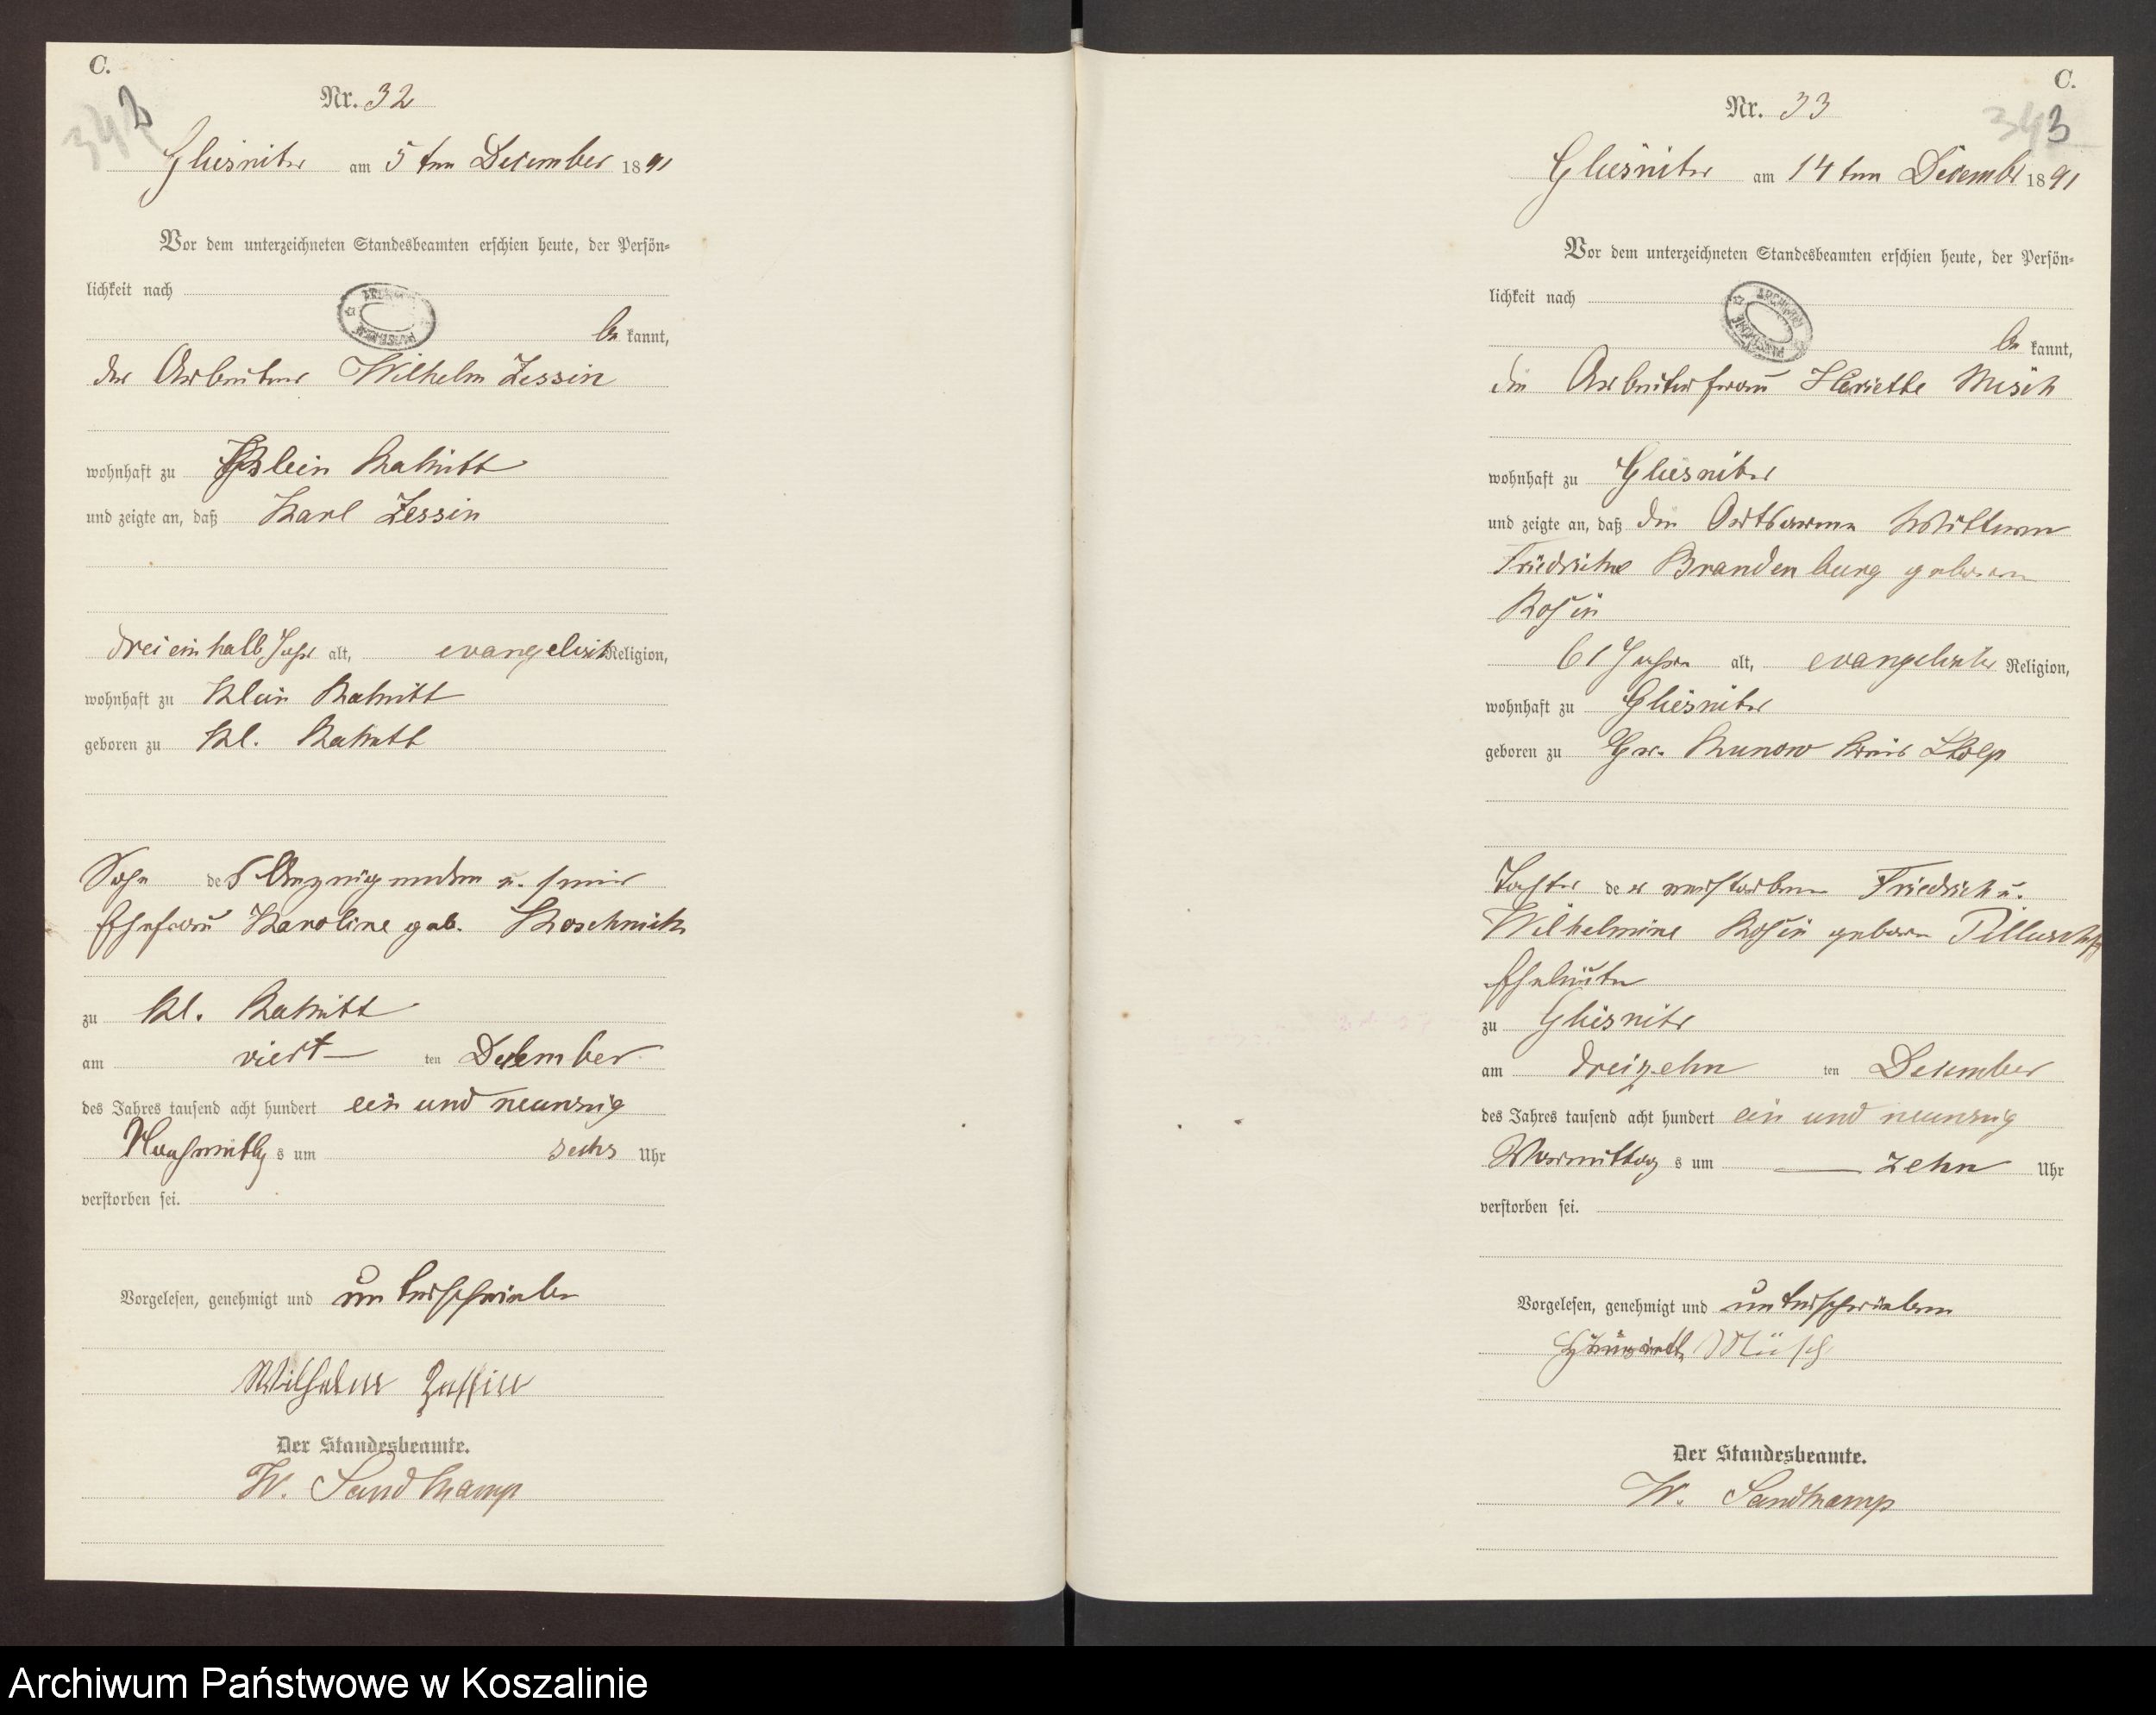 C.
342
Nr. 32
Gliesnitz am 5ten December 1891
Vor dem unterzeichneten Standesbeamten erschien heute, der Persön-
lichkeit nach
be kannt,
der Arbeiter Wilhelm Zessin
wohnhaft zu Klein Rakitt
und zeigte an, daß Karl Zessin
drei ein halb Jahr alt, evangelisch Religion,
wohnhaft zu Klein Rakitt
geboren zu Kl. Rakitt
Sohn des Anzeigenden u. seiner
Ehefrau Karoline geb. Koschnick
zu Kl. Rakitt
am viert ten December
des Jahres tausend acht hundert ein und neunzig
Nachmittag s um sechs Uhr
verstorben sei.
Vorgelesen, genehmigt und unterschrieben
Wilhelm Zessin
Der Standesbeamte.
W. Sandkamp
C.
343
Nr. 33
Gliesnitz am 14ten Decembr 1891
Vor dem unterzeichneten Standesbeamten erschien heute, der Persön-
lichkeit nach
be kannt,
die Arbeiterfrau Heriette Misch
wohnhaft zu Gliesnitz
und zeigte an, daß die Ortsarme Wittwe
Friedricke Brandenburg geborene
Rosin
61 Jahre alt, evangelischer Religion,
wohnhaft zu Gliesnitz
geboren zu Gr. Runow Kreis Stolp
Tochter de er verstorbenen Friedrich u.
Wilhelmine Rosin geboren
Eheleute
zu Gliesnitz
am dreizehn ten December
des Jahres tausend acht hundert ein und neunzig
Vormittag s um zehn Uhr
verstorben sei.
Vorgelesen, genehmigt und unterschrieben
Misch
Der Standesbeamte.
W. Sandkamp
Archiwum Państwowe w Koszalinie